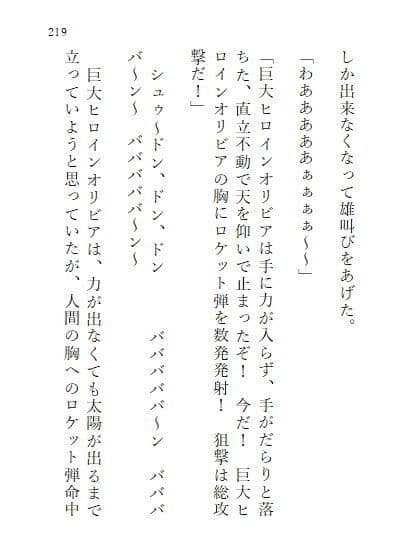 219
しか出来なくなって雄叫びをあげた。
「わああああああぁぁぁぁ～～」
「巨大ヒロインオリビアは手に力が入らず、手がだらりと落
ちた、直立不動で天を仰いで止まったぞ！　今だ！　巨大ヒ
ロインオリビアの胸にロケット弾を数発発射！　狙撃は総攻
撃だ！」
シュゥ～ドン、ドン、ドン　　　ババババババ～ン　ババババ
バ～ン～　ババババババ～ン～
巨大ヒロインオリビアは、力が出なくても太陽が出るまで
立っていようと思っていたが、人間の胸へのロケット弾命中